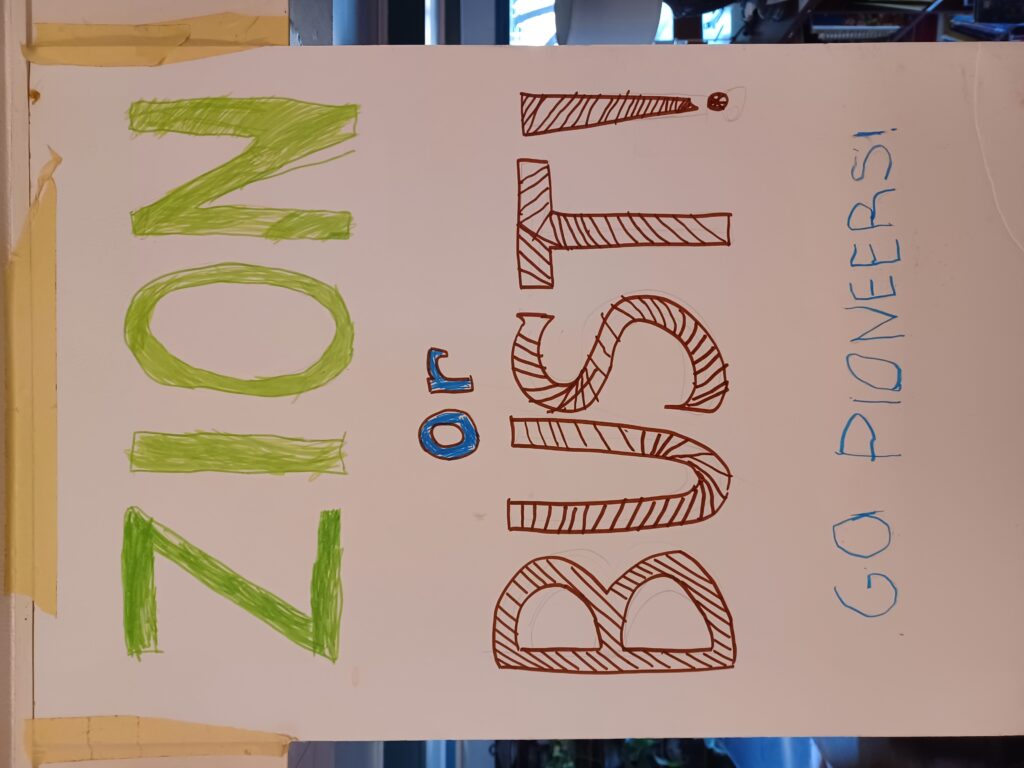 ZION
or
BUST!
GO PIONEERS!